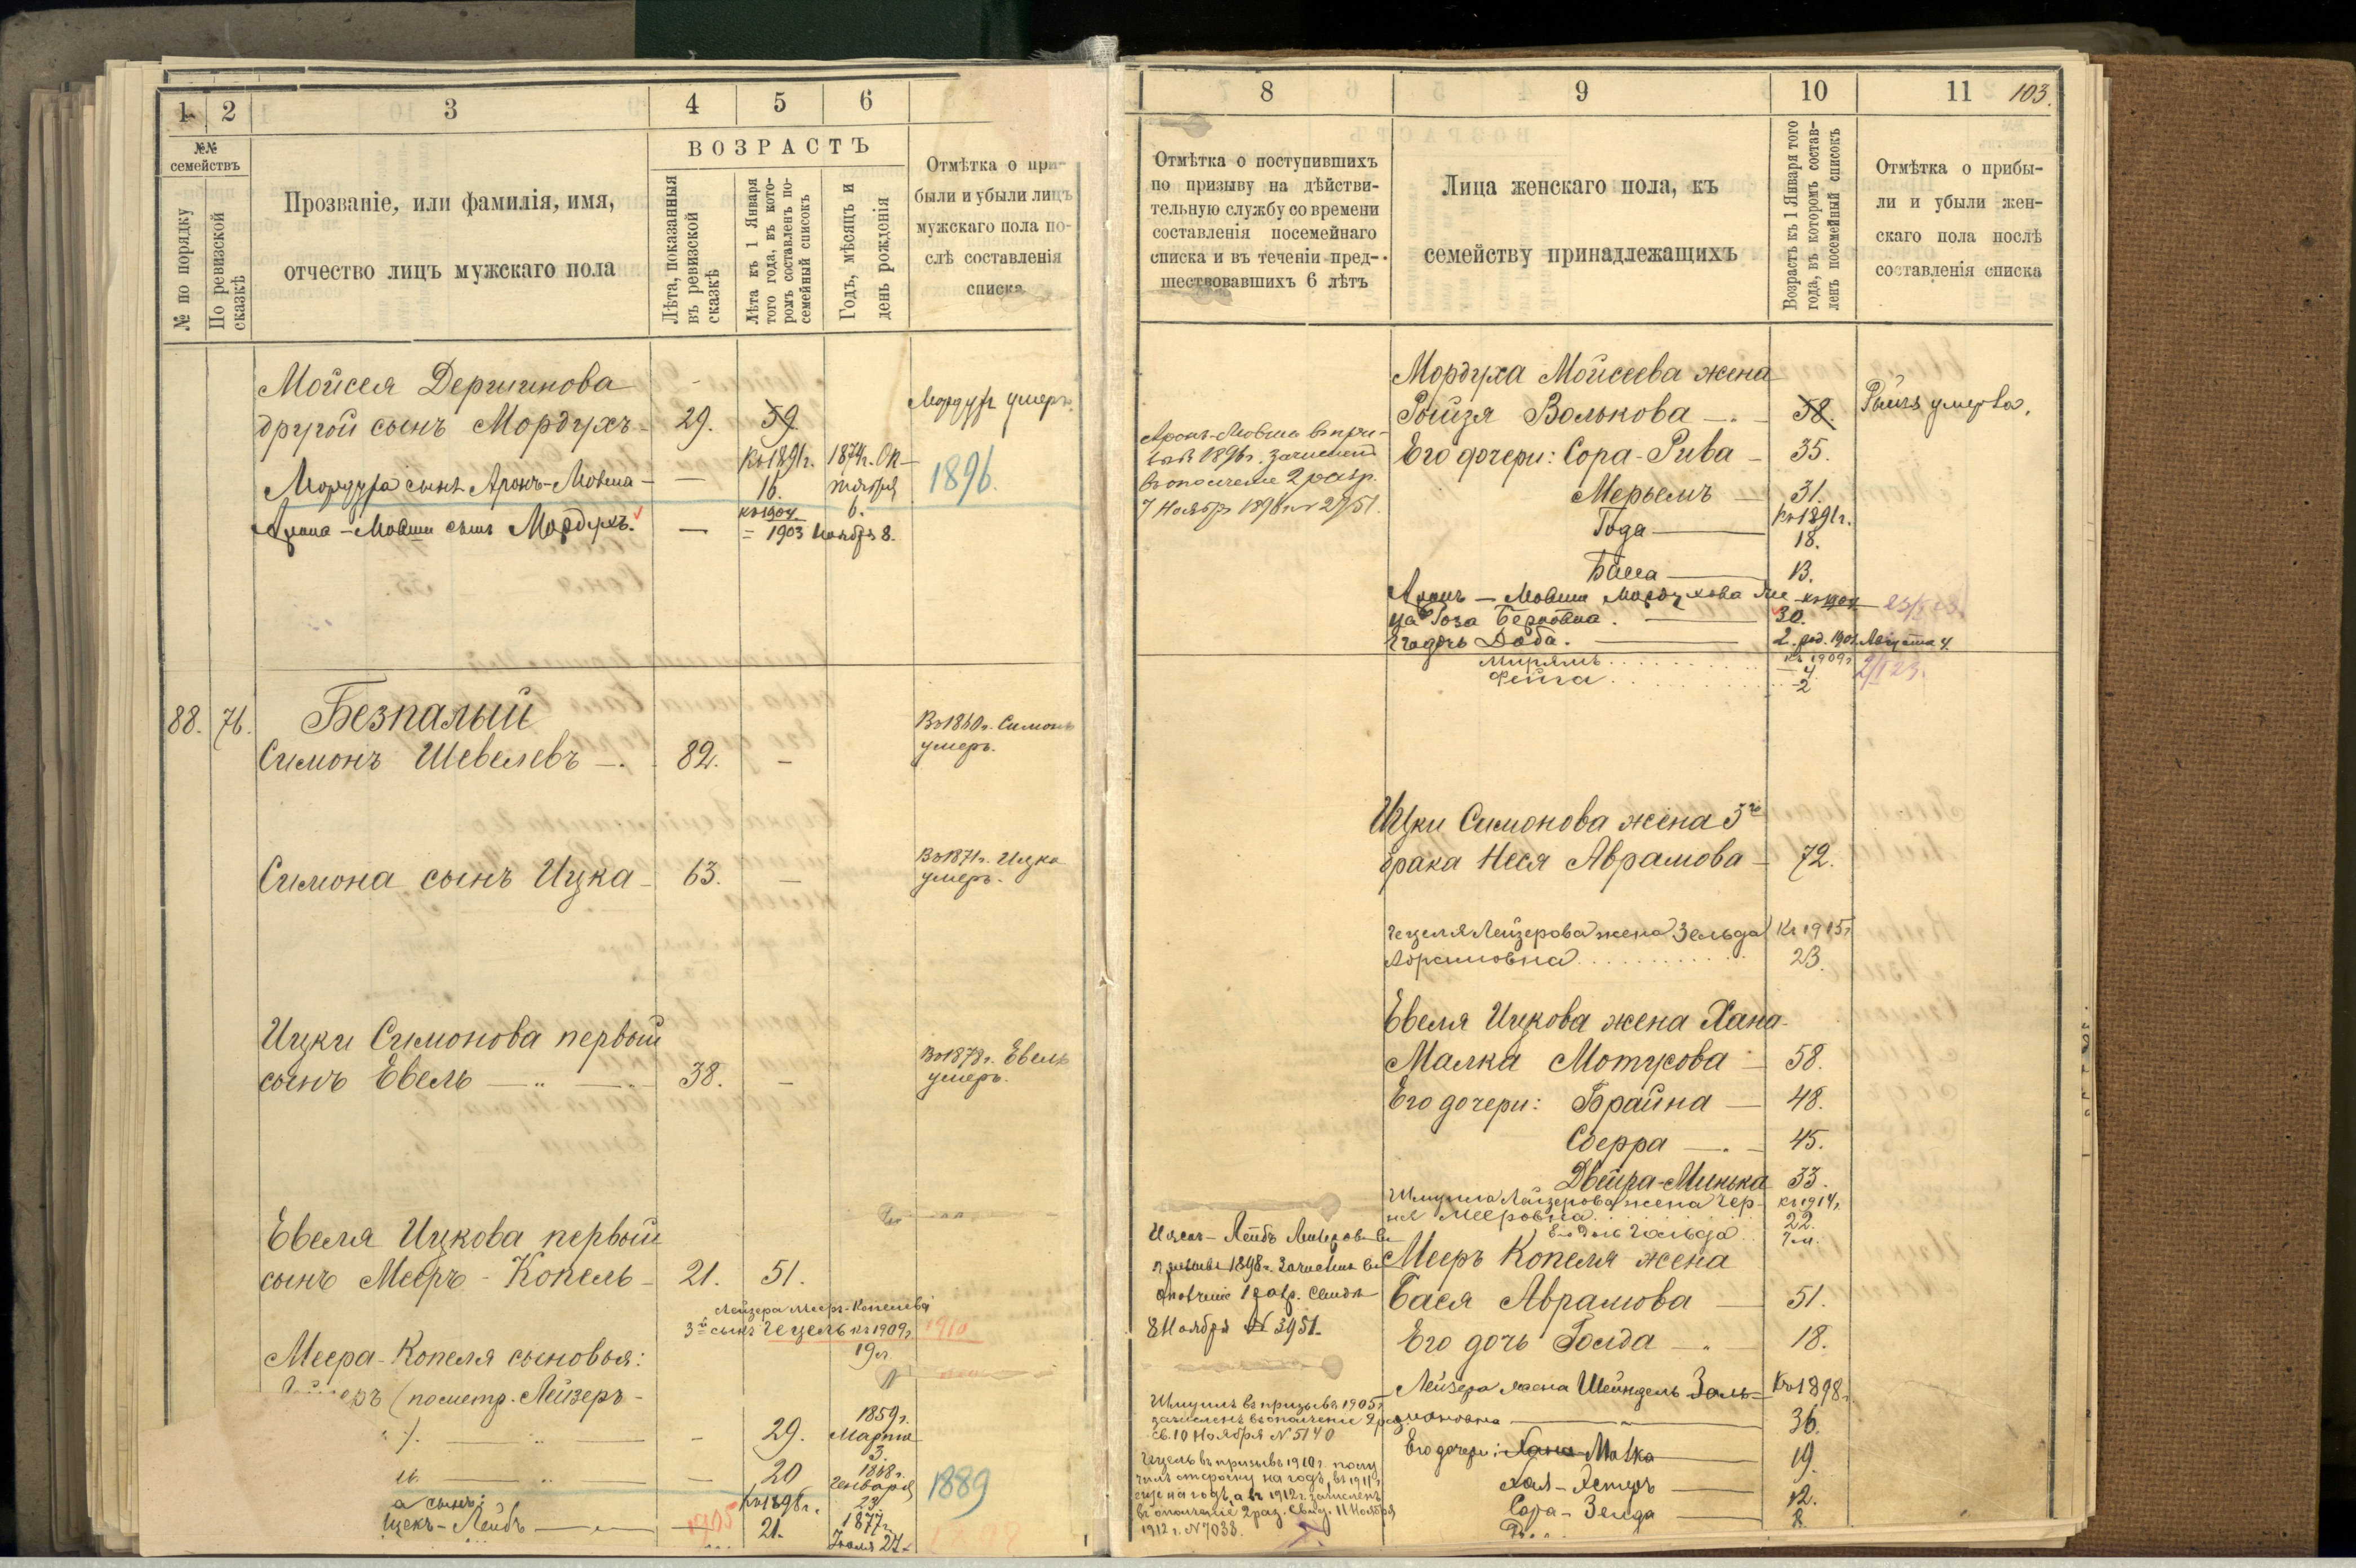 1 2 3 4 5 6
№№ семействъ
№ по порядку
По ревизской сказкѣ
Прозваніе, или фамилія, имя,
отчество лицъ мужскаго пола
ВОЗРАСТЪ
Лѣта, показанныя
въ ревизской
сказкѣ
Лѣта къ 1 Января
того года, въ кото-
ромъ составленъ по-
семейный списокъ
Годъ, мѣсяцъ и
день рожденія
Отмѣтка о при-
были и убыли лицъ
мужскаго пола по-
слѣ составленія
списка
Мойсея
другой сынъ Мордухъ 29. 59 Мордухъ умеръ.
Мордуха сынъ Аронъ-Мовша — Къ 1891г. 16. 1874г. Ок-
тября 6. 1896.
Арона-Мовши сынъ Мордухъ. — къ 1904
= 1903 Ноября 8.
88. 76. Безпалый
Симонъ Шевелевъ 82. – Въ 1860г. Симонъ
умеръ.
Симона сынъ Ицка 63. — Въ 1871г. Ицка
умеръ.
Ицки Симонова первый
сынъ Евель 38. – Въ 1878г. Евель
умеръ.
Евеля Ицкова первый
сынъ Мееръ-Копель 21. 51.
Лейзера Мееръ-Копелева
3й сынъ Гецель къ 1909г. 1910
19л.
Меера-Копеля сыновья:
(по метр. Лейзеръ -
29. 1859г.
Марта
3.
20 1868г.
Генваря
23 1889
а сынъ:
Ицекъ-Лейбъ — 1905 Къ 1898г.
21. 1877г.
Іюля 27
8 9 10 11 103.
Отмѣтка о поступившихъ
по призыву на дѣйстви-
тельную службу со времени
составленія посемейнаго
списка и въ теченіи пред-
шествовавшихъ 6 лѣтъ
Лица женскаго пола, къ
семейству принадлежащихъ
Возрастъ къ 1 Января того
года, въ которомъ состав-
ленъ посемейный списокъ
Отмѣтка о прибы-
ли и убыли жен-
скаго пола послѣ
составленія списка
Мордуха Мойсеева жена
Рыйзя Волькова 58. умерла.
Аронъ-Мовша въ при-
зывъ 1896г. зачисленъ
въ ополченіе 2 разр.
7 Ноября 1896
Его дочери: Сора-Рива 35.
Мерьемъ 31.
Года Къ 1891г.
18.
Басса 13.
Аронъ-Мовши Мордухова же- къ 1904
на Роза Берковна. 30.
Его дочь Доба. 2. род. 1901 Августа 4.
Мирямъ къ 1909г.
4
Фейга 2
Ицки Симонова жена 3го
брака Неся Аврамова 72.
Гецеля Лейзерова жена Зельда Къ 1915г
Абрамовна 23.
Евеля Ицкова жена Хана-
Малка Мотухова 58.
Его дочери: Брайна — 48.
Сверра 45.
Двейра-Минька 33.
Шмуила Лейзерова жена Чер- къ 1914г.
ня Мееровна 22.
Его дочь Гольда
Ицекъ-Лейбъ Лейзеровъ въ
призывѣ 1898г. зачисленъ въ
ополченіе 1 разр. Свид.
8 Ноября № 3951.
Мееръ Копеля жена
Бася Аврамова 51.
Его дочь Голда 18.
Лейзера жена Шейндель Заль- Къ 1898г.
мановна 36.
Шмуилъ въ призывъ 1905г.
зачисленъ въ ополченіе 2 раз.
св. 10 Ноября № 5140
Его дочери: Хана-Малка 19.
Хая-Эстеръ 12.
Сора-Зелда 8
Гецель въ призывъ 1910г. полу-
чилъ отсрочку на годъ, въ 1911г.
еще на годъ, а въ 1912г. зачисленъ
въ ополченіе 2 раз. Свид. 11 Ноября
1912г. № 7038.